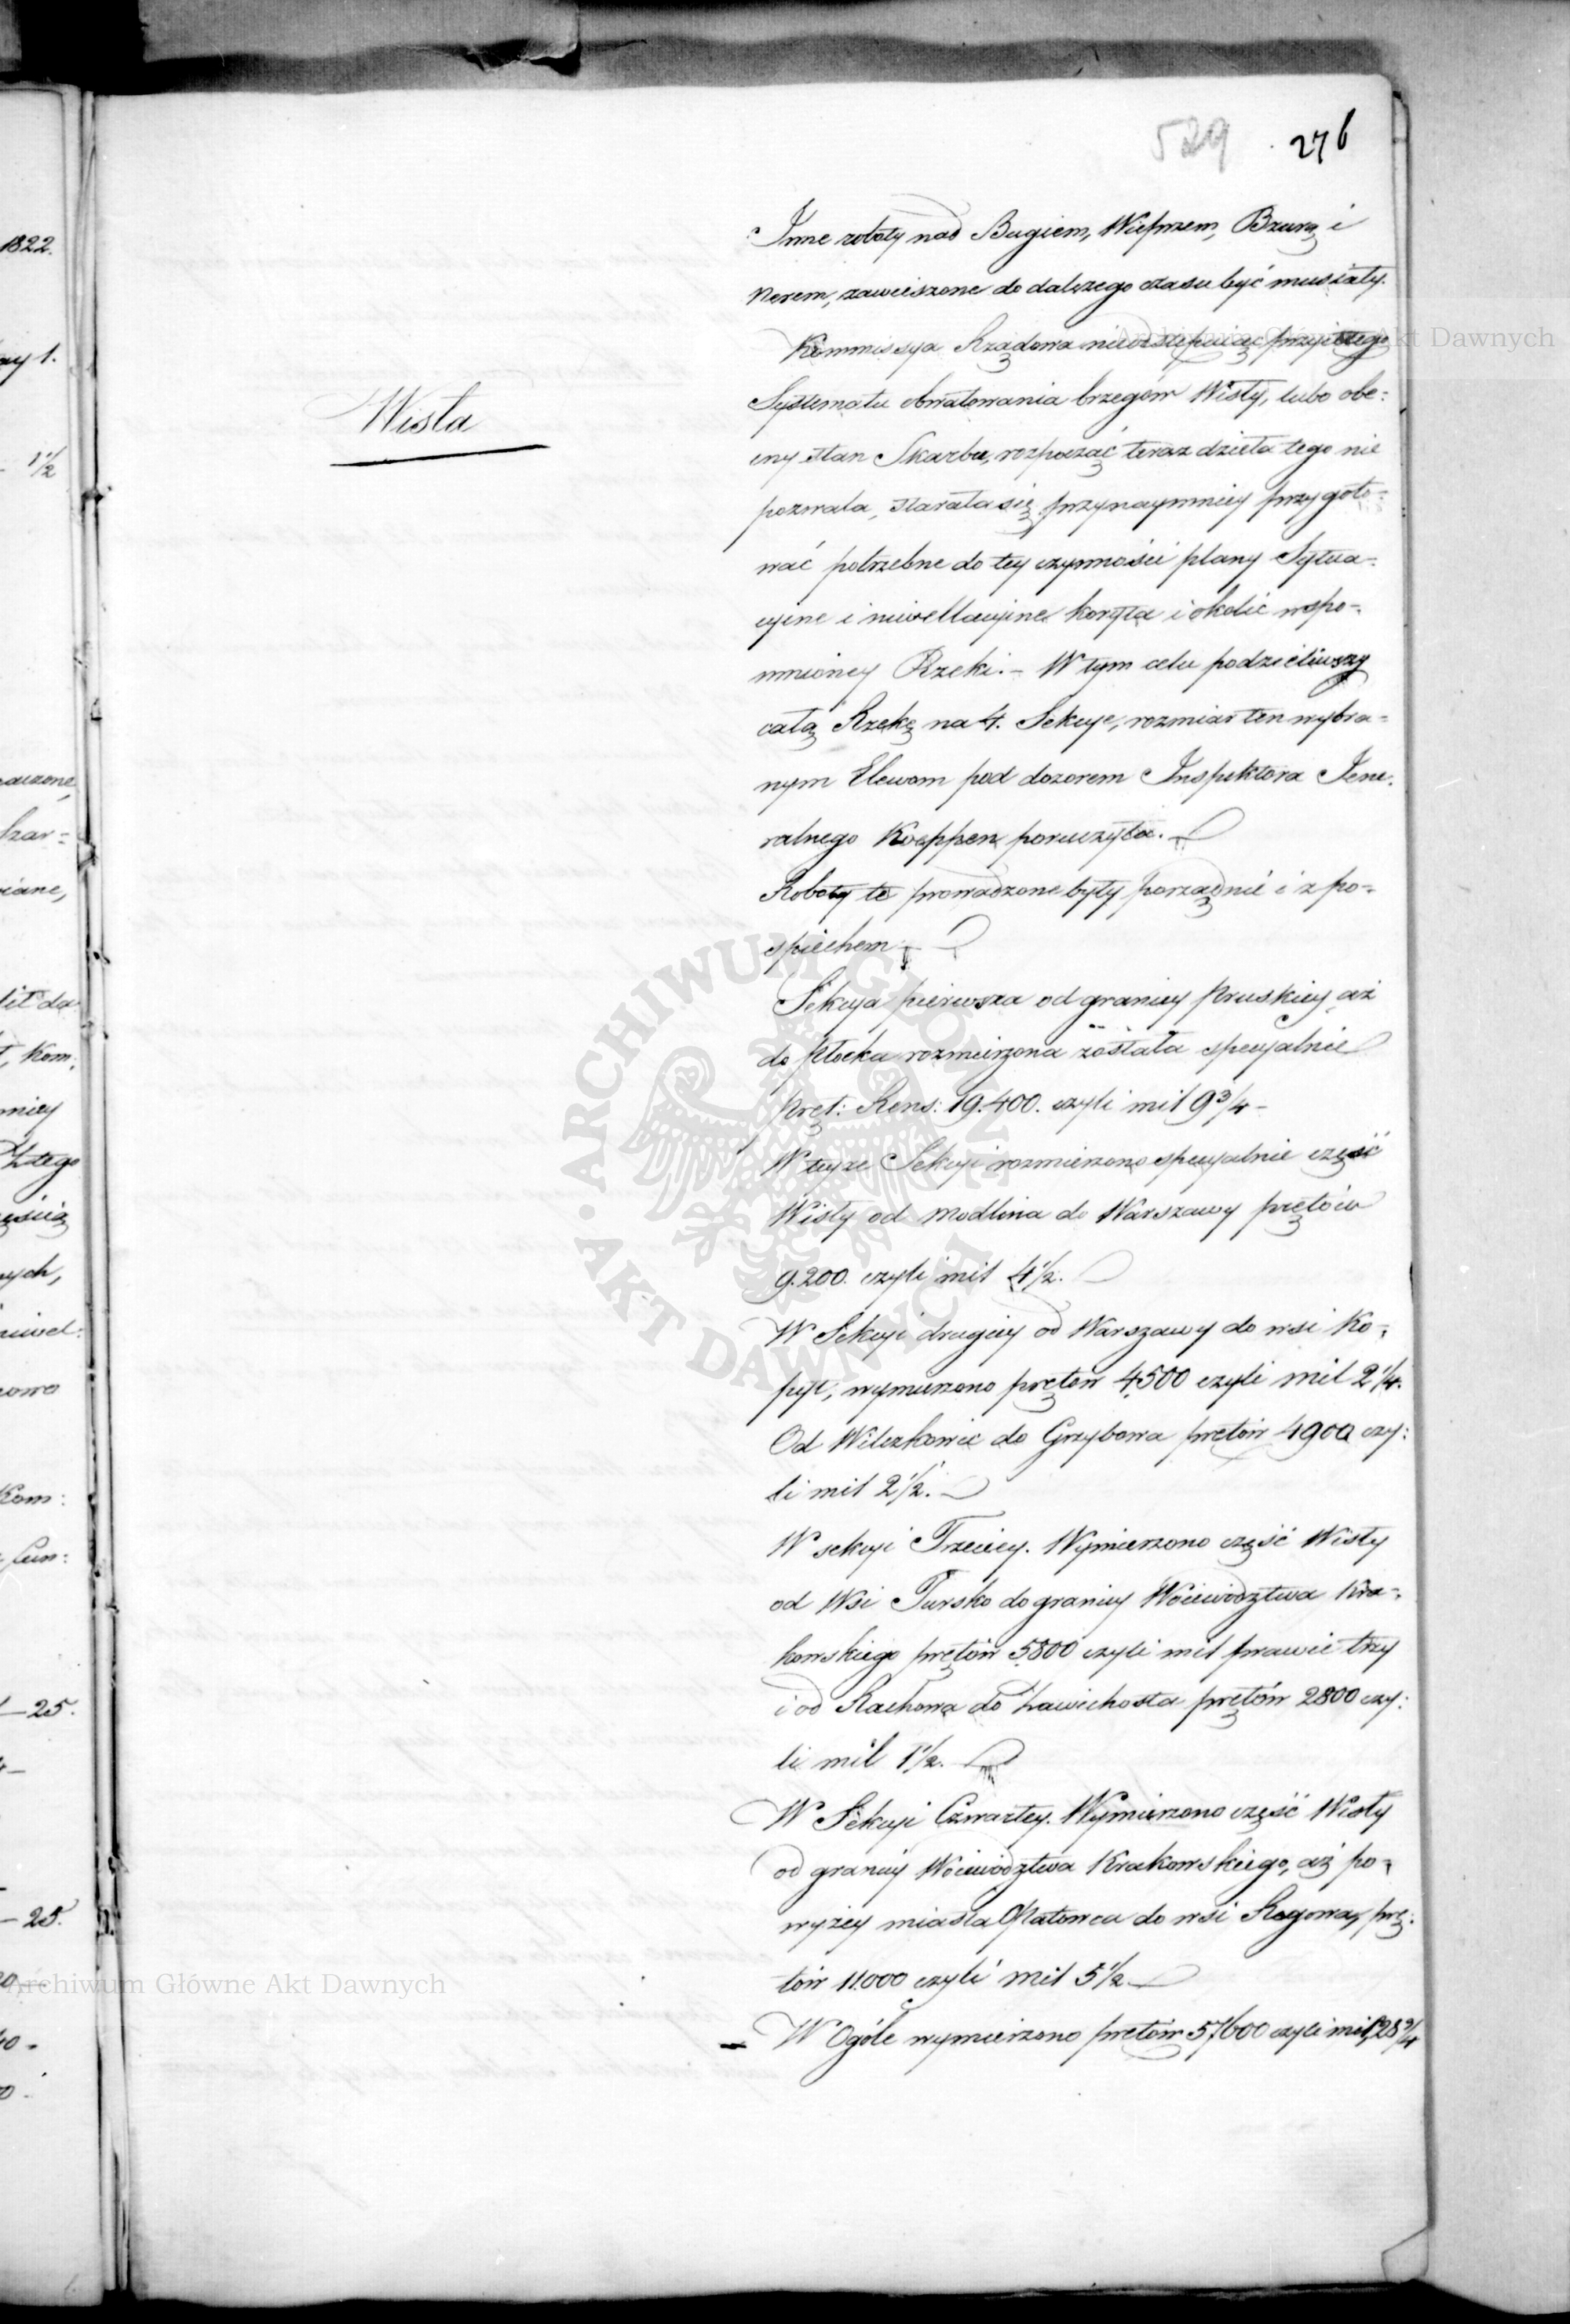 529 276
Inne roboty nad Bugiem, Wieprzem, Bzurą i
Nerem, zawieszone do dalszego czasu być musiały.
Kommissya Rządowa nieodstępuiąc przyiętego
Systematu obwałowania brzegów Wisły, lubo obe:
cny stan Skarbu, rozpocząć teraz dzieła tego nie
pozwala, starała się przynaymniey przygoto=
wać potrzebne do tey czynności plany Sytua=
cyjne i niwellacyjne koryta i okolic wspo=
mnioney Rzeki. – W tym celu podzieliwszy
całą Rzekę na 4. Sekcye, rozmiar ten wybra=
nym Elewom pod dozorem Inspektora Jene.
ralnego Koeppen poruczyła.
Roboty te prowadzone były porządnie i z po=
spiechem.
Sekcya pierwsza od granicy Pruskiey aż
do Płocka rozmierzona została specyalnie
Pręt: Rens: 19.400. czyli mil 9 3/4 –
W teyże Sekcyi rozmierzono specyalnie część
Wisły od Modlina do Warszawy prętów
9.200. czyli mil 4 1/2.
W Sekcyi drugiey od Warszawy do wsi Ko=
pyt, wymierzono prętów 4500 czyli mil 2 1/4.
Od Wilczkowic do Grzybowa prętów 4900 czy:
li mil 2 1/2.
W sekcyi Trzeciey. Wymierzono część Wisły
od Wsi Tursko do granicy Województwa Kra=
kowskiego prętów 5800 czyli mil prawie trzy
i od Rachowa do Zawichosta prętów 2800 czy:
li mil 1 1/2.
W Sekcyi Czwartey. Wymierzono część Wisły
od granicy Województwa Krakowskiego, aż po=
wyżey miasta Opatowca do wsi Rogowa, prę:
tów 11.000 czyli mil 5 1/2
W Ogóle wymierzono prętów 57600 czyli mil 28 3/4
Wisła
1822.
1.
1 1/2
Kom:
25.
25.
ARCHIWUM GŁÓWNE · AKT DAWNYCH ·
Archiwum Główne Akt Dawnych
Archiwum Główne Akt Dawnych